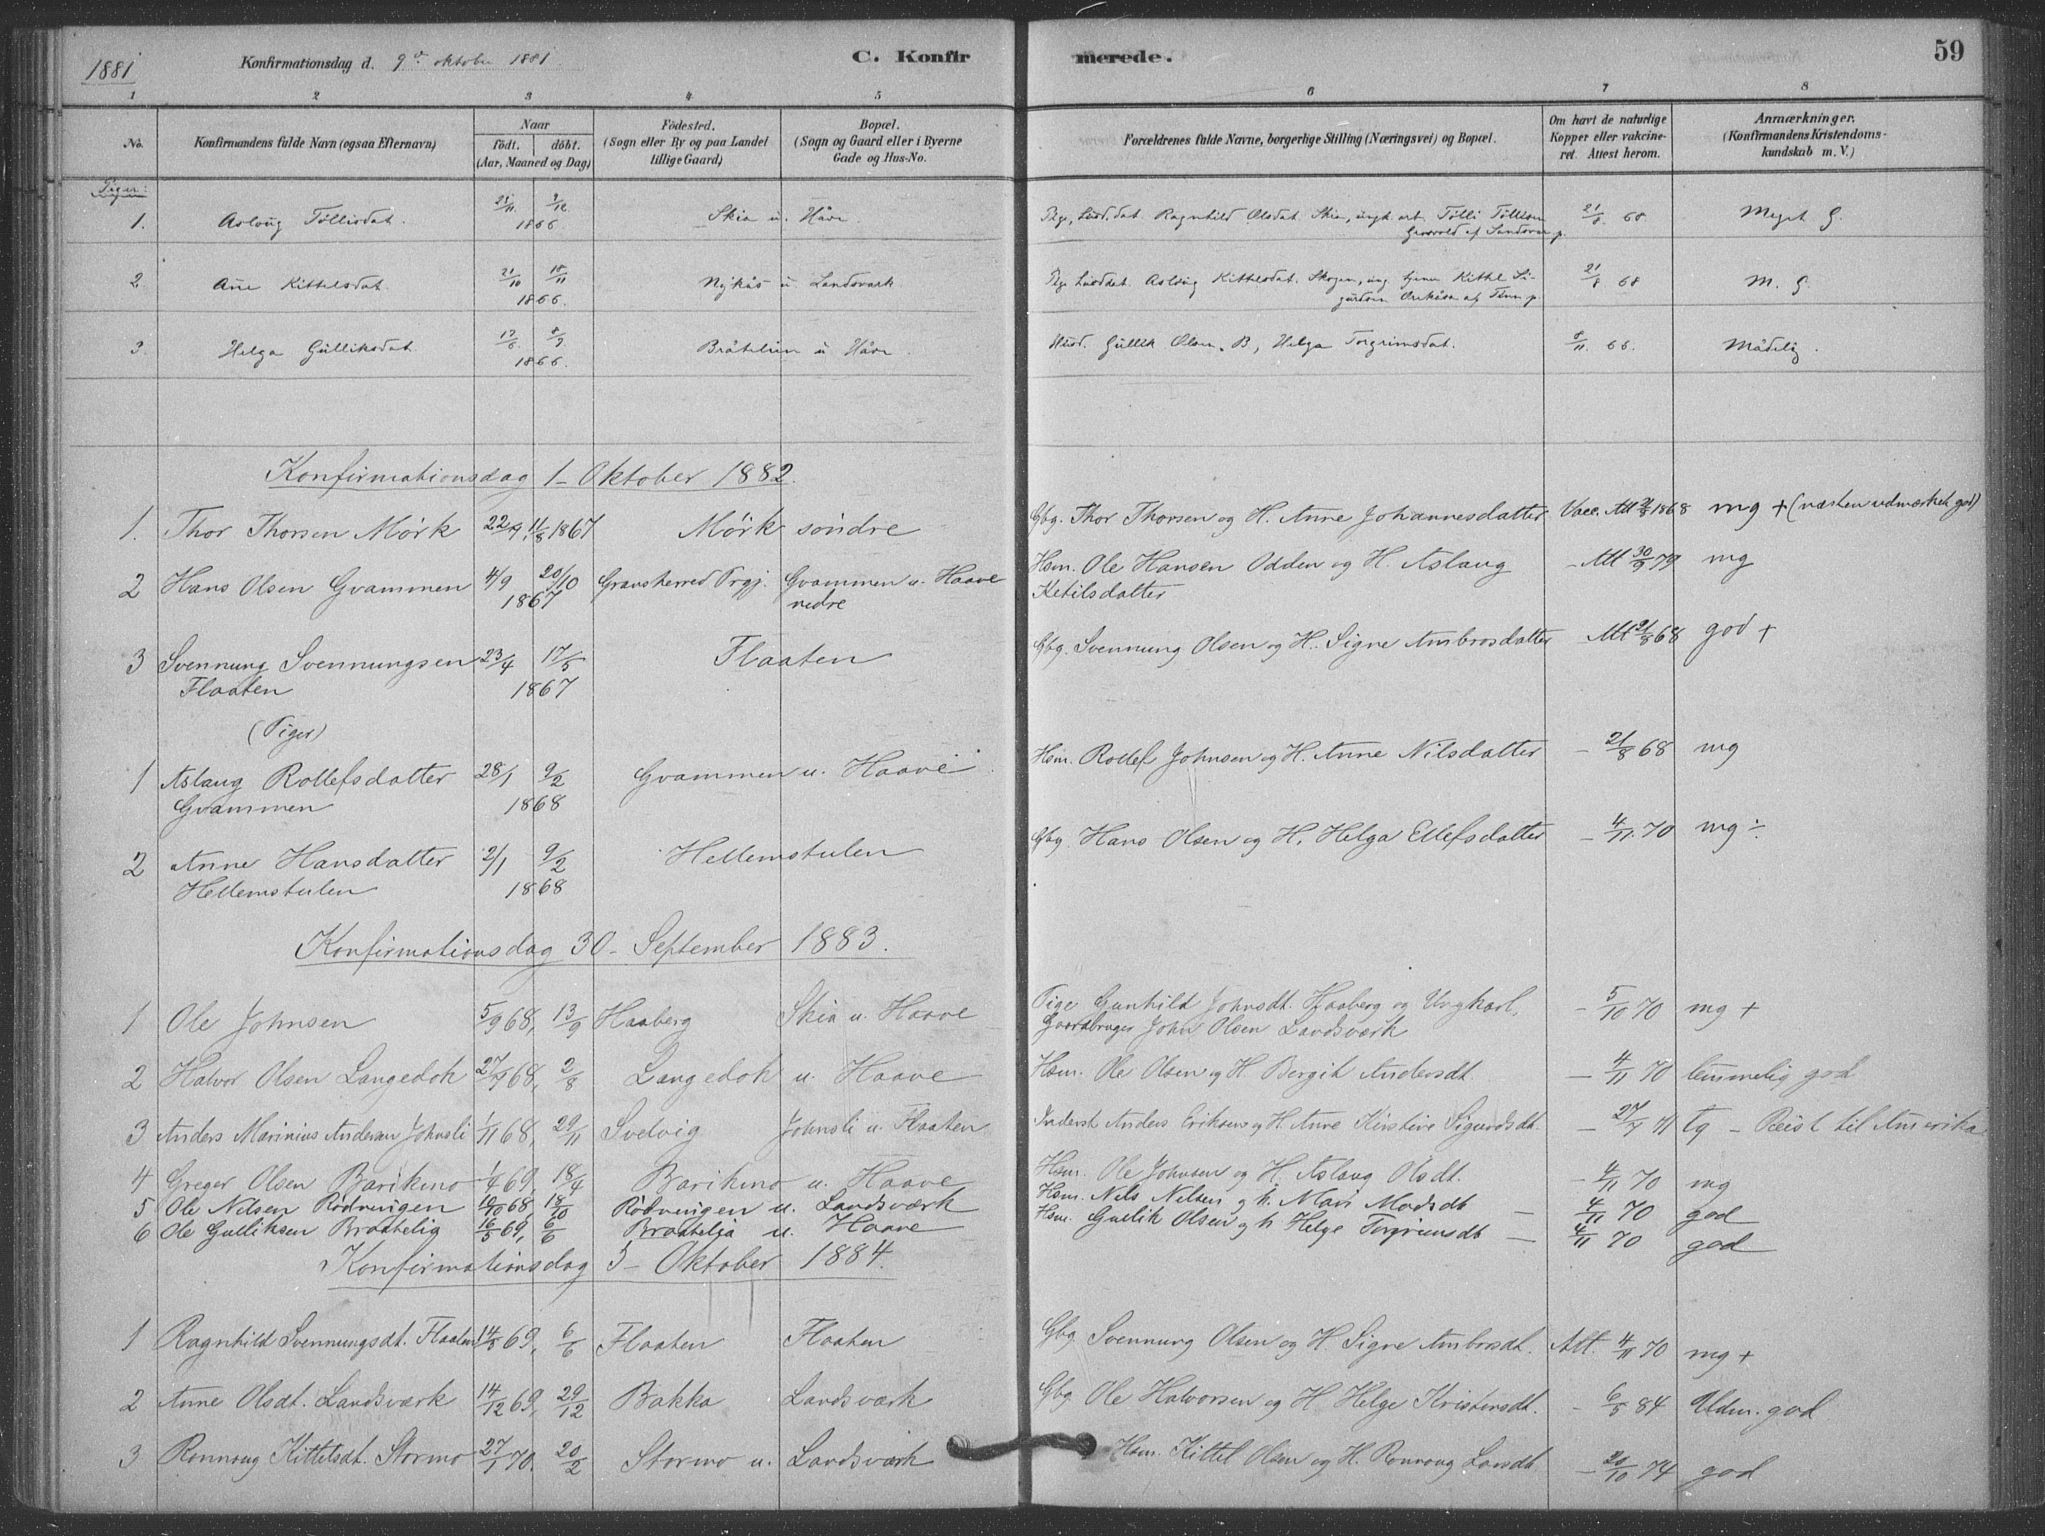 1881 Konfirmationsdag d. 9de oktober 1881. C. Konfirmerede. 59
1 2 3 4 5 6 7 8
No. Konfirmandens fulde Navn (ogsaa Efternavn) Naar födt. döbt. (Aar, Maaned og Dag) Födested. (Sogn eller By og paa Landet tillige Gaard) Bopæl. (Sogn og Gaard eller i Byerne Gade og Hus-No. Forældrenes fulde Navne, borgerlige Stilling (Næringsvei) og Bopæl. Om havt de naturlige Kopper eller vakcineret. Attest herom. Anmærkninger. (Konfirmandens Kristendomskundskab m. V.)
Piger:
1. Aslaug Tollisdat. 1866 Skia u. Håve Pige, Ragnhild Olsdat. Skia, Tølli Tøllisen 21/8 68 Meget G.
2. Ane Kittelsdat. 21/10 18/11 1866. Nykås u. Landsvark Pige Aslaug Kittelsdat. Skogen, Kittel Sigurdsen 21/8 68 M. G.
3. Helga Gulliksdat. 17/6 8/7 1866. Bråtelien u Håve Husd. Gullik Olsen. B, Helga Torgrimsdat. 8/11 66. Mådelig.
Konfirmationsdag 1- Oktober 1882.
1. Thor Thorsen Mörk 22/7, 11/8 1867 Mörk söndre Gbg. Thor Thorsen og H. Anne Johannesdatter Vacc. Att 21/8 1868 mg + (næsten udmærket god)
2 Hans Olsen Gvammen 4/9 20/10 1867 Gransherred Prgj. Gvammen u. Haave nedre Hsm. Ole Hansen Odden og H. Aslaug Ketilsdatter - Att 30/9 79 mg
3 Svennung Svennungsen Flaaten 23/4 17/5 1867 Flaaten Gbg. Svennung Olsen og H. Signe Ambrosdatter Att 21/8 68 god +
(Piger)
1 Aslaug Rollefsdatter Gvammen 28/1 9/2 1868 Gvammen u. Haave Hsm. Rollef Johnsen og H. Anne Nilsdatter - 21/8 68 mg
2 Anne Hansdatter Hellemstulen 2/1 9/2 1868 Hellemstulen Gbg. Hans Olsen og H. Helga Ellefsdatter - 4/11 70 mg ÷
Konfirmationsdag 30- September 1883.
1 Ole Johnsen 5/9 68, 13/9 Haaberg Skia u. Haave Pige Gunhild Johnsdt. Haaberg og Ungkarl, Gaardbruger John Olsen Landsværk - 5/10 70 mg +
2 Halvor Olsen Langedok 27/7 68, 2/8 Langedok u. Haave Hsm. Ole Olsen og H. Bergit Andersdt. - 4/11 70 temmelig god
3 Anders Marinius Andersen Johnsli 1/11 68, 29/11 Svelvig Johnsli u. Flaaten Inderst Anders Eriksen og H. Anne Kirstine Sigurdsdt. - 27/7 71 Tg - Reist til Amerika
4 Greger Olsen Barikmo 1/4 69, 18/4 Barikmo u. Haave Hsm. Ole Johnsen og H. Aslaug Olsdt. - 4/11 70 mg
5 Ole Nilsen Rödningen 10/10 68, 18/10 Rödningen u. Landsværk Hsm. Nels Nelsen og h. Mari Madsdt - 4/11 70 god
6 Ole Gulliksen Braatelig 16/5 69, 6/6 Braatelia u. Haave Hsm. Gullik Olsen og h Helge Torgrimsdt - 4/11 70 god
Konfirmationsdag 5- Oktober 1884.
1 Ragnhild Svennungsdt. Flaaten 14/5 69, 6/6 Flaaten Flaaten Gbg Svennung Olsen og H Signe Ambrosdt. Att. 4/11 70 mg +
2 Anne Olsdt. Landsværk 14/12 69, 29/12 Bakka Landsværk Gbg Ole Halvorsen og H Helge Kristensdt. - 6/5 84 Udm. god
3 Ronnoug Kittelsdt. Stormo 27/1 70. 20/2 Stormo u. Landsværk Hsm. Kittel Olsen og H. Ronnoug Larsdt - 20/10 74 god